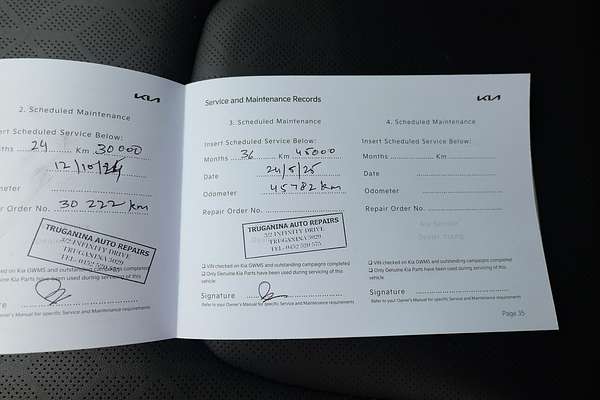 KIA
2. Scheduled Maintenance
ert Scheduled Service Below:
ths 24 Km 30000
12/10/24
meter
r Order No. 30 222 km
TRUGANINA AUTO REPAIRS
3/2 INFINITY DRIVE,
TRUGANINA 3029
TEL. 0452 520 575
ed on Kia GWMS and outstanding campaigns completed
ne Kia Parts have been used during servicing of this
re
ner's Manual for specific Service and Maintenance requirements
Service and Maintenance Records
KIA
3. Scheduled Maintenance
Insert Scheduled Service Below:
Months 36 Km 45000
Date 24/5/25
Odometer 45782 km
Repair Order No.
TRUGANINA AUTO REPAIRS
3/2 INFINITY DRIVE,
TRUGANINA 3029
TEL. 0452 520 575
❑ VIN checked on Kia GWMS and outstanding campaigns completed
❑ Only Genuine Kia Parts have been used during servicing of this
vehicle
Signature
Refer to your Owner's Manual for specific Service and Maintenance requirements
4. Scheduled Maintenance
Insert Scheduled Service Below:
Months Km
Date
Odometer
Repair Order No.
Kia Service
Dealer Stamp
❑ VIN checked on Kia GWMS and outstanding campaigns completed
❑ Only Genuine Kia Parts have been used during servicing of this
vehicle
Signature
Refer to your Owner's Manual for specific Service and Maintenance requirements
Page 35